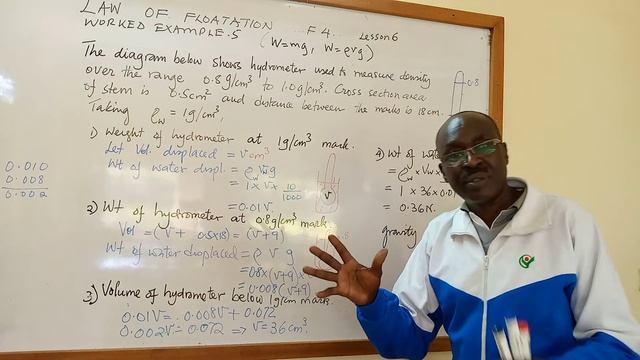 LAW OF FLOATATION F4 Lesson 6
WORKED EXAMPLE.5 (W=mg, W=ρvg)
The diagram below shows hydrometer used to measure density
over the range 0.8g/cm³ to 1.0g/cm³. Cross section area
of stem is 0.5cm² and distance between the marks is 18cm.
Taking ρw = 1g/cm³,
0.8
1) Weight of hydrometer at 1g/cm³ mark.
Let Vol. displaced = v cm³
Wt of water displ. = ρw Vwg
= 1 x V x 10/1000
= 0.01V.
V
2) Wt of hydrometer at 0.8g/cm³ mark.
Vol = (V + 0.5x18) = (V+9)
Wt of water displaced = ρ v g
= 0.8 x (V+9) x
= 0.008(V+9)
3) Volume of hydrometer below 1g/cm³ mark.
0.01V = 0.008V + 0.072
0.002V = 0.072 ⇒ V = 36cm³.
0.010
0.008
0.002
4) Wt of
= ρw x Vw x
= 1 x 36 x 0.01
= 0.36N.
gravity